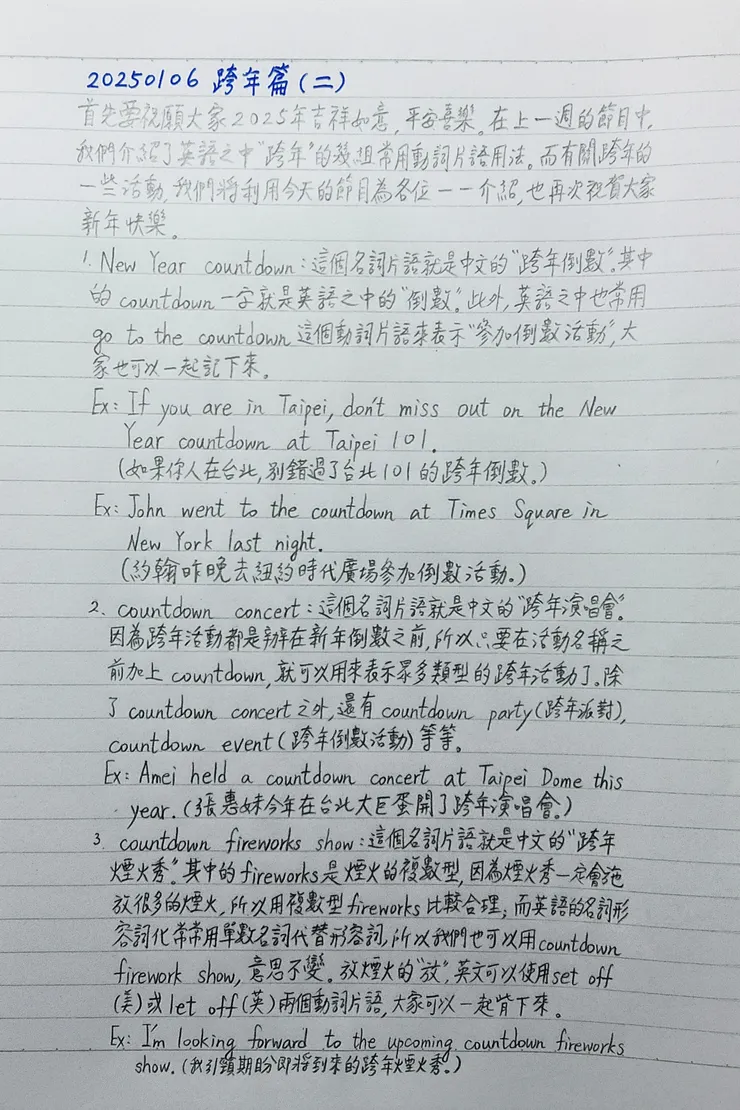 20250106 跨年篇(二)
首先要祝願大家2025年吉祥如意，平安喜樂。在上一週的節目中，
我們介紹了英語之中"跨年"的幾組常用動詞片語用法。而有關跨年的
一些活動，我們將利用今天的節目為各位一一介紹，也再次祝賀大家
新年快樂。
1. New Year countdown：這個名詞片語就是中文的"跨年倒數"。其中
的countdown一字就是英語之中的"倒數"。此外，英語之中也常用
go to the countdown這個動詞片語來表示"參加倒數活動"，大
家也可以一起記下來。
Ex: If you are in Taipei, don't miss out on the New
Year countdown at Taipei 101.
(如果你人在台北，別錯過了台北101的跨年倒數。)
Ex: John went to the countdown at Times Square in
New York last night.
(約翰昨晚去紐約時代廣場參加倒數活動。)
2. countdown concert：這個名詞片語就是中文的"跨年演唱會"。
因為跨年活動都是辦在新年倒數之前，所以只要在活動名稱之
前加上countdown，就可以用來表示眾多類型的跨年活動了。除
了countdown concert之外，還有countdown party(跨年派對)，
countdown event(跨年倒數活動)等等。
Ex: Amei held a countdown concert at Taipei Dome this
year. (張惠妹今年在台北大巨蛋開了跨年演唱會。)
3. countdown fireworks show：這個名詞片語就是中文的"跨年
煙火秀"。其中的fireworks是煙火的複數型，因為煙火秀一定會施
放很多的煙火，所以用複數型fireworks比較合理；而英語的名詞形
容詞化常常用單數名詞代替形容詞，所以我們也可以用countdown
firework show，意思不變。放煙火的"放"，英文可以使用set off
(美)或let off(英)兩個動詞片語，大家可以一起背下來。
Ex: I'm looking forward to the upcoming countdown fireworks
show. (我引頸期盼即將到來的跨年煙火秀。)